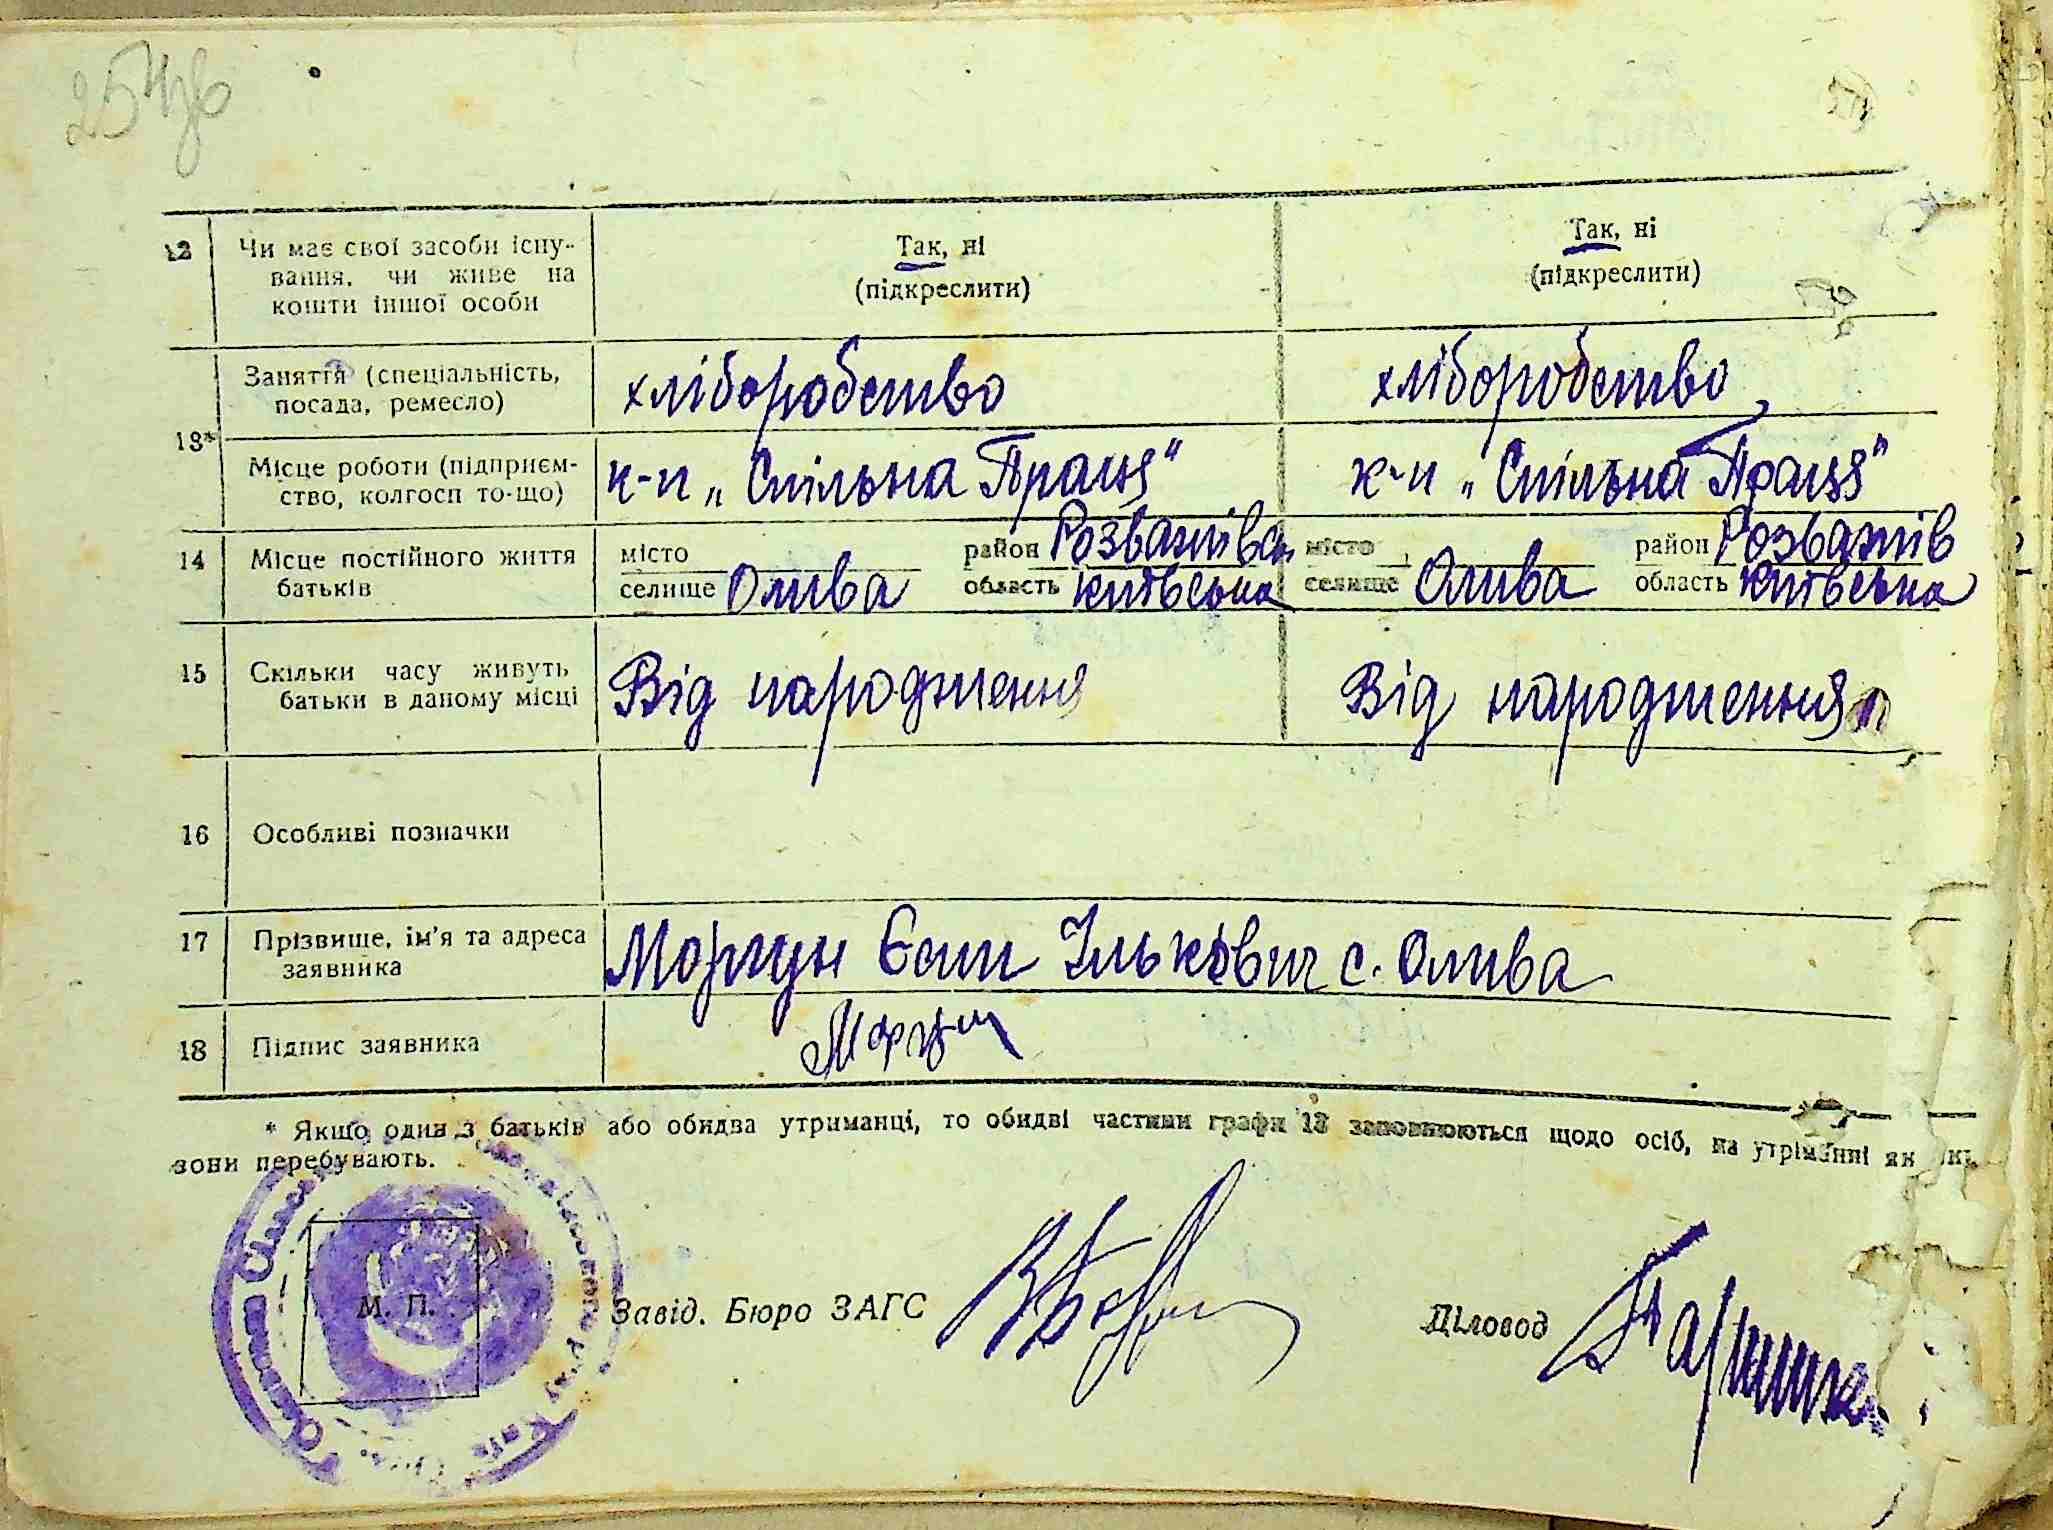 254зв
12 Чи має свої засоби існу-
вання, чи живе на
кошти іншої особи
Так, ні
(підкреслити)
Так, ні
(підкреслити)
13*
Заняття (спеціальність,
посада, ремесло)
хліборобство
хліборобство
Місце роботи (підприєм-
ство, колгосп то-що)
к-п „Спільна Праця"
к-п „Спільна Праця"
14 Місце постійного життя
батьків
місто район Розважівсь
селище Олива область Київська
місто район Розважів
селище Олива область Київська
15 Скільки часу живуть
батьки в даному місці
Від народження
Від народження
16 Особливі позначки
17 Прізвище, ім'я та адреса
заявника
Моргун ЄсипІлькович с. Олива
18 Підпис заявника
Моргун
* Якщо один з батьків або обидва утриманці, то обидві частини графи 13 заповнюються щодо осіб, на утріманні як
вони перебувають.
М. П.
Завід. Бюро ЗАГС
Діловод